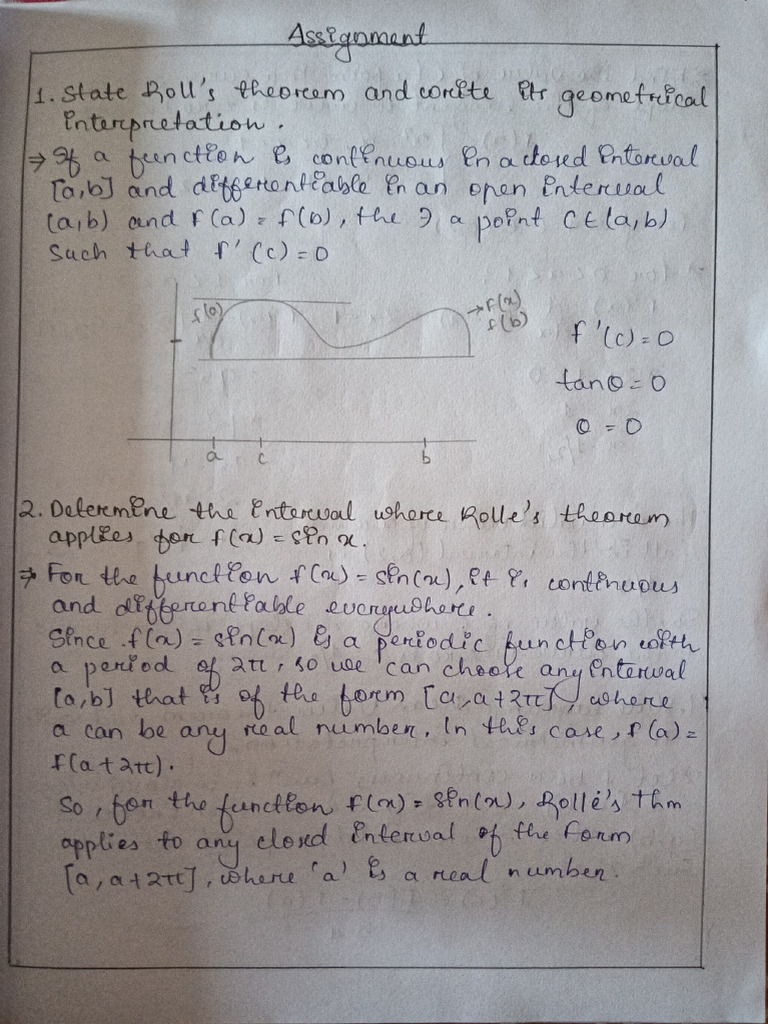 Assignment
1. State Roll's theorem and write its geometrical
interpretation.
⇒ If a function is continuous in a closed interval
[a,b] and differentiable in an open interval
(a,b) and f(a) = f(b), the ∃ a point C ∈ (a,b)
Such that f'(c) = 0
f(a)
→ f(x)
f(b)
f'(c) = 0
tanθ = 0
θ = 0
a c b
2. Determine the interval where Rolle's theorem
applies for f(x) = sin x.
⇒ For the function f(x) = sin(x), it is continuous
and differentiable everywhere.
Since f(x) = sin(x) is a periodic function with
a period of 2π, so we can choose any interval
[a,b] that is of the form [a, a+2π], where
a can be any real number. In this case, f(a) =
f(a+2π).
So, for the function f(x) = sin(x), Rolle's thm
applies to any closed interval of the form
[a, a+2π], where 'a' is a real number.